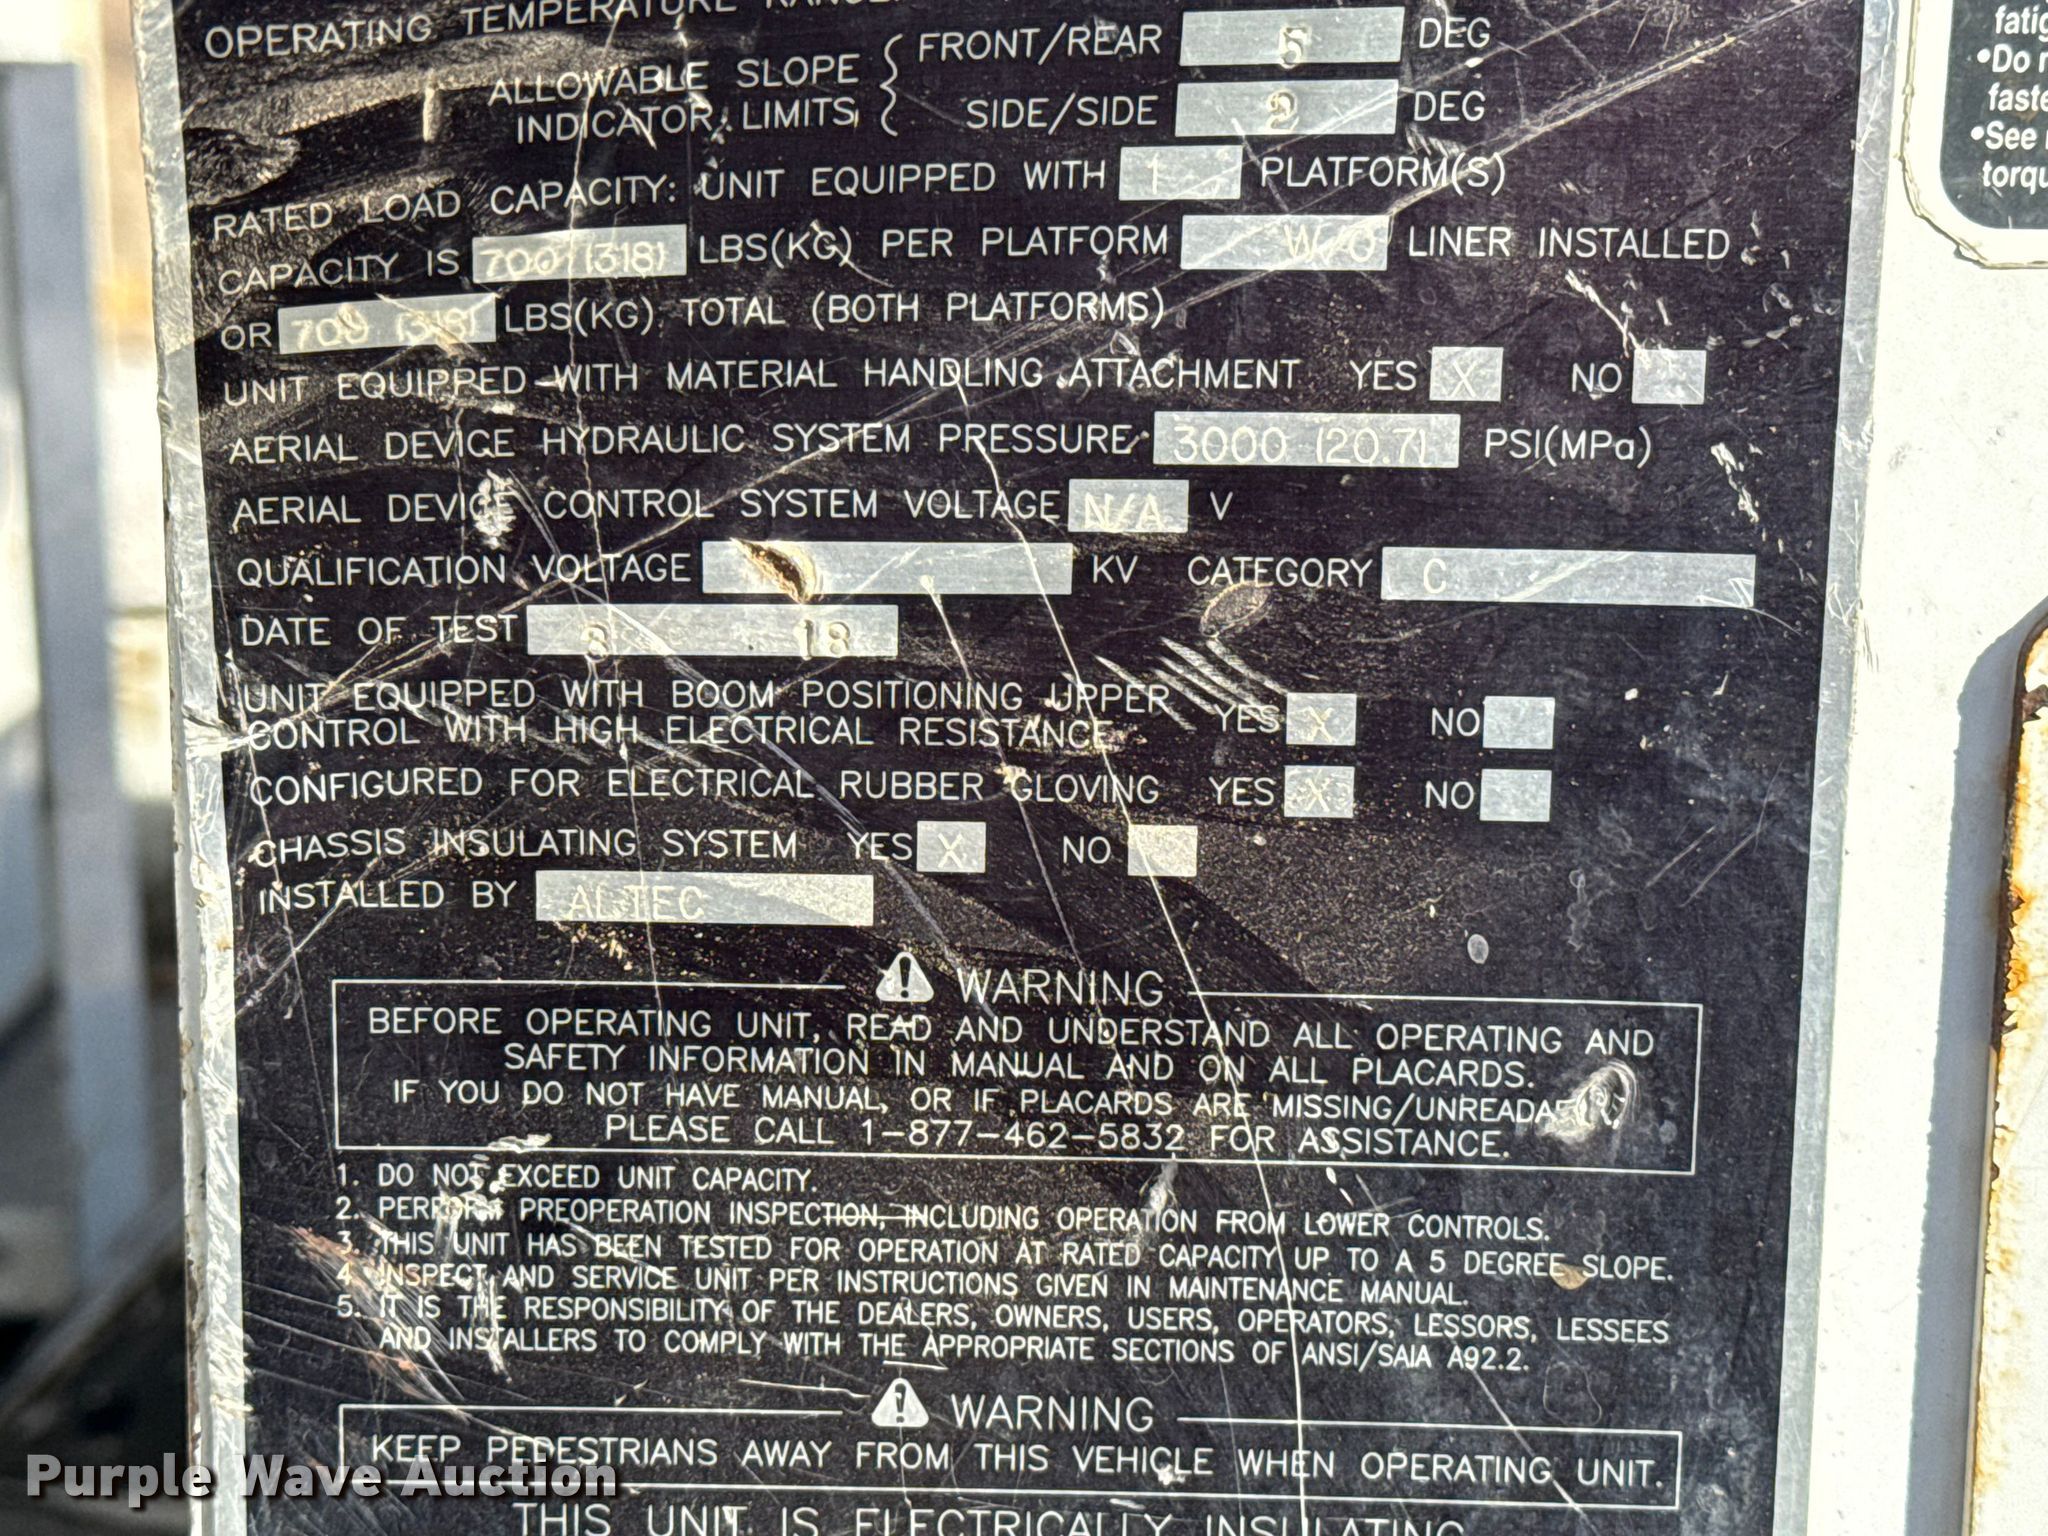 OPERATING TEMPERATURE
ALLOWABLE SLOPE INDICATOR LIMITS
FRONT/REAR 5 DEG
SIDE/SIDE 2 DEG
RATED LOAD CAPACITY: UNIT EQUIPPED WITH 1 PLATFORM(S)
CAPACITY IS 700 (318) LBS(KG) PER PLATFORM W/O LINER INSTALLED
OR 700 (318) LBS(KG) TOTAL (BOTH PLATFORMS)
UNIT EQUIPPED WITH MATERIAL HANDLING ATTACHMENT YES X NO
AERIAL DEVICE HYDRAULIC SYSTEM PRESSURE 3000 (20.7) PSI(MPa)
AERIAL DEVICE CONTROL SYSTEM VOLTAGE N/A V
QUALIFICATION VOLTAGE KV CATEGORY C
DATE OF TEST 18
UNIT EQUIPPED WITH BOOM POSITIONING UPPER
CONTROL WITH HIGH ELECTRICAL RESISTANCE YES X NO
CONFIGURED FOR ELECTRICAL RUBBER GLOVING YES X NO
CHASSIS INSULATING SYSTEM YES X NO
INSTALLED BY ALTEC
WARNING
BEFORE OPERATING UNIT, READ AND UNDERSTAND ALL OPERATING AND
SAFETY INFORMATION IN MANUAL AND ON ALL PLACARDS.
IF YOU DO NOT HAVE MANUAL, OR IF PLACARDS ARE MISSING/UNREADA
PLEASE CALL 1-877-462-5832 FOR ASSISTANCE.
1. DO NOT EXCEED UNIT CAPACITY.
2. PERFORM PREOPERATION INSPECTION, INCLUDING OPERATION FROM LOWER CONTROLS.
3. THIS UNIT HAS BEEN TESTED FOR OPERATION AT RATED CAPACITY UP TO A 5 DEGREE SLOPE.
4. INSPECT AND SERVICE UNIT PER INSTRUCTIONS GIVEN IN MAINTENANCE MANUAL.
5. IT IS THE RESPONSIBILITY OF THE DEALERS, OWNERS, USERS, OPERATORS, LESSORS, LESSEES
AND INSTALLERS TO COMPLY WITH THE APPROPRIATE SECTIONS OF ANSI/SAIA A92.2.
WARNING
KEEP PEDESTRIANS AWAY FROM THIS VEHICLE WHEN OPERATING UNIT.
THIS UNIT IS ELECTRICALLY INSULATING
fatig
•Do
faste
•See
torqu
Purple Wave Auction